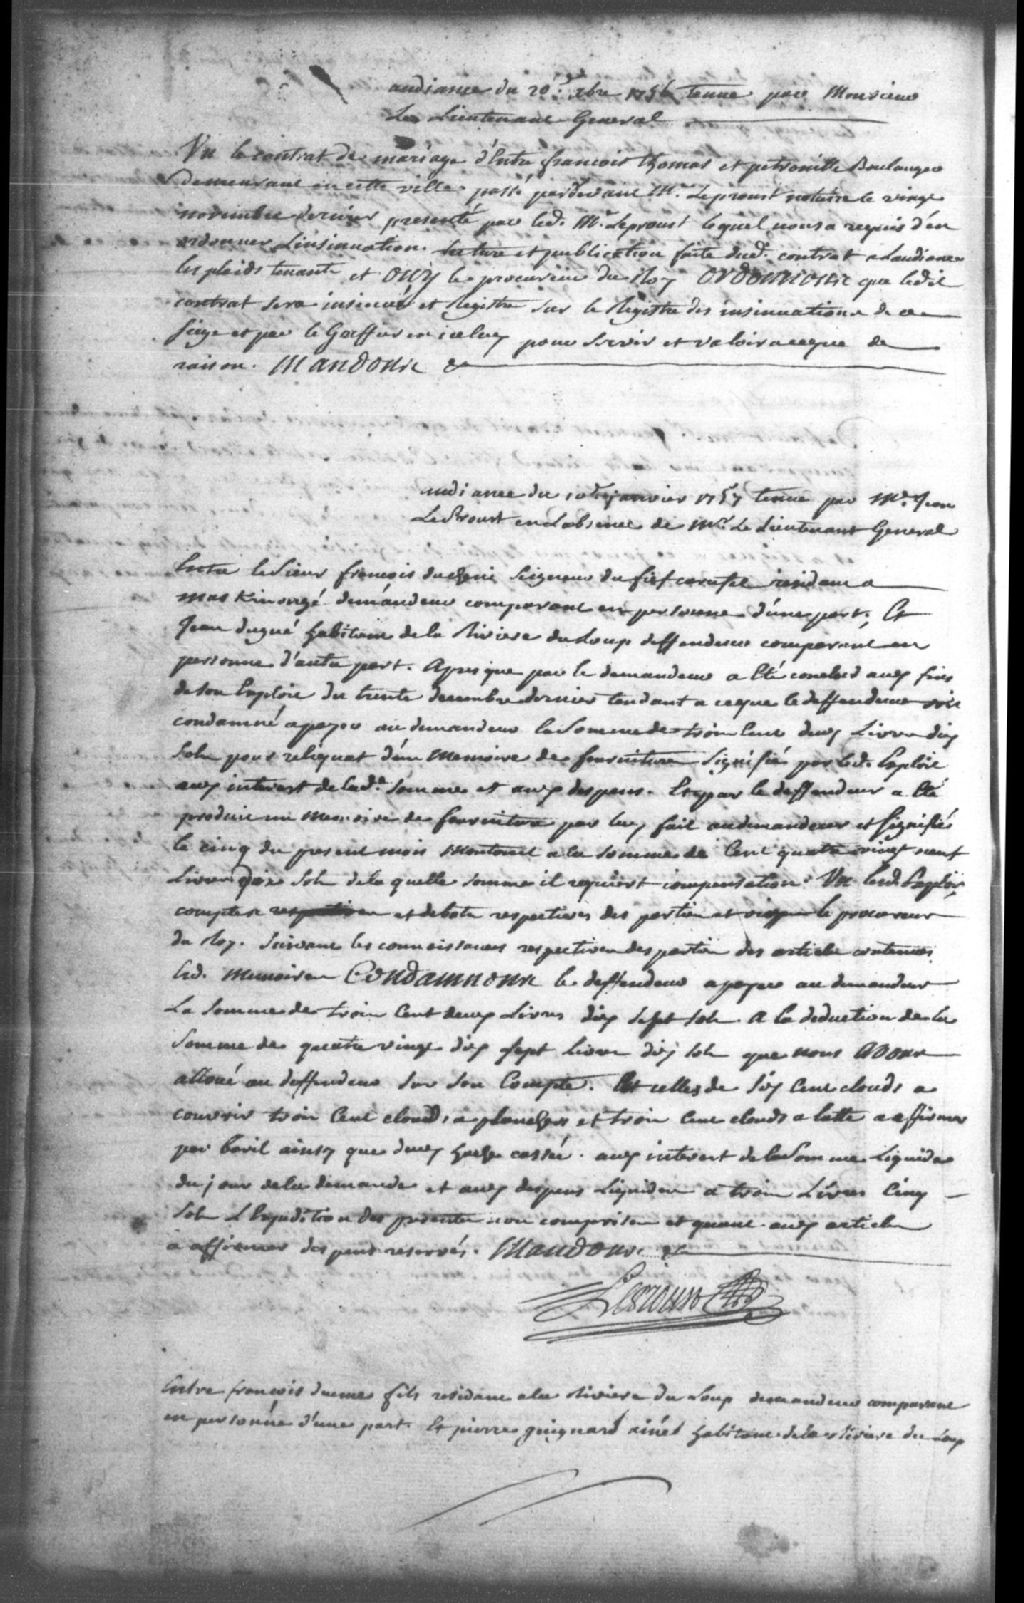 audiance du 20e xbre 1756 tenue par Monsieur
Le Lieutenant General
Vu le contrat de mariage d'Entre francois thomas et petronille Boulanger
Demeurant en cette ville passé pardevant Mr. Leproust notaire le vingt
novembre dernier presenté par led. Mr. Leproust lequel nous a requis d'en
ordonner Linsinuation. lecture et publication faite dud. contrat a Laudiance
les plaids tenants et ouy le procureur du Roy ordonnons que ledit
contrat sera insinué et Registré sur le Registre des insinuations de ce
siege et par le Greffier en iceluy pour servir et valoir a ceque de
raison. Mandons &
audiance du 10e janvier 1757 tenue par Mr. Jean
LeProust en Labsence de Mr. Le Lieutenant General
Entre le Sieur francois ducheni Seigneur du fief carufel residant a
maskinongé demandeur comparant en personne d'une part, Et
Jean dugué habitant de la Riviere du Loup deffendeur comparant en
personne d'autre part. Apres que par le demandeur a été conclud aux fins
de son Exploit du trente decembre dernier tendant a ceque le deffendeur soit
condamné a payer au demandeur la Somme de trois Cent deux Livres dix
sols pour reliquat d'un Memoire de fourniture Signifié par led. Exploit
aux interest de lade. Somme et aux despens. Et par le deffendeur a été
produit un Memoire de fourniture par luy fait audemandeur et signifié
le cinq du present mois Montant a la somme de Cent quatre vingt neuf
Livres dix sols de la quelle somme il requiert compensation. Vu led. Exploit,
comptes et debats respectives des parties et ouy le procureur
du Roy. Suivant les connoissances respectives des parties des articles contenus
Esd. Memoires Condamnons le deffendeur a payer au demandeur
La Somme de trois Cent deux Livres dix sept sols a la deduction de la
Somme de quatre vingt dix sept livres dix sols que nous avons
alloué au deffendeur sur son Compte. Et celles de six Cent clouds a
couvrir trois Cent clouds a plancher et trois Cent clouds a latte a affirmer
par baril ainsy que deux haches cassée. aux interest de la Somme Liquide
du jour de la demande et aux despens Liquidés a trois Livres Cinq
sols L'Expedition des presentes non comprises et quant aux articles
a affirmer despens reservés. Mandons &
Leproust
Entre francois fils residant a la Riviere du Loup demandeur comparant
en personne d'une part. Et pierre guignard ainé habitant de la Riviere du Loup